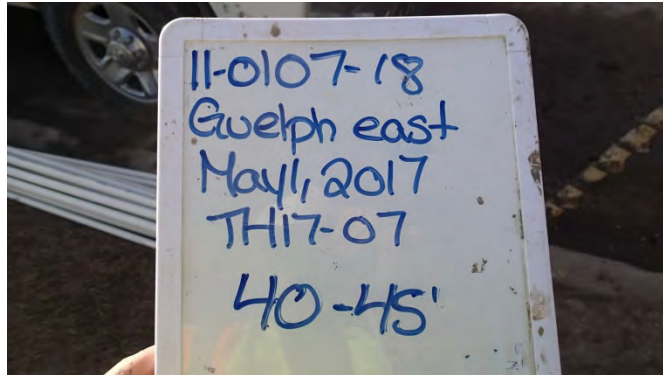 11-0107-18
Guelph east
May 1, 2017
TH17-07
40-45'